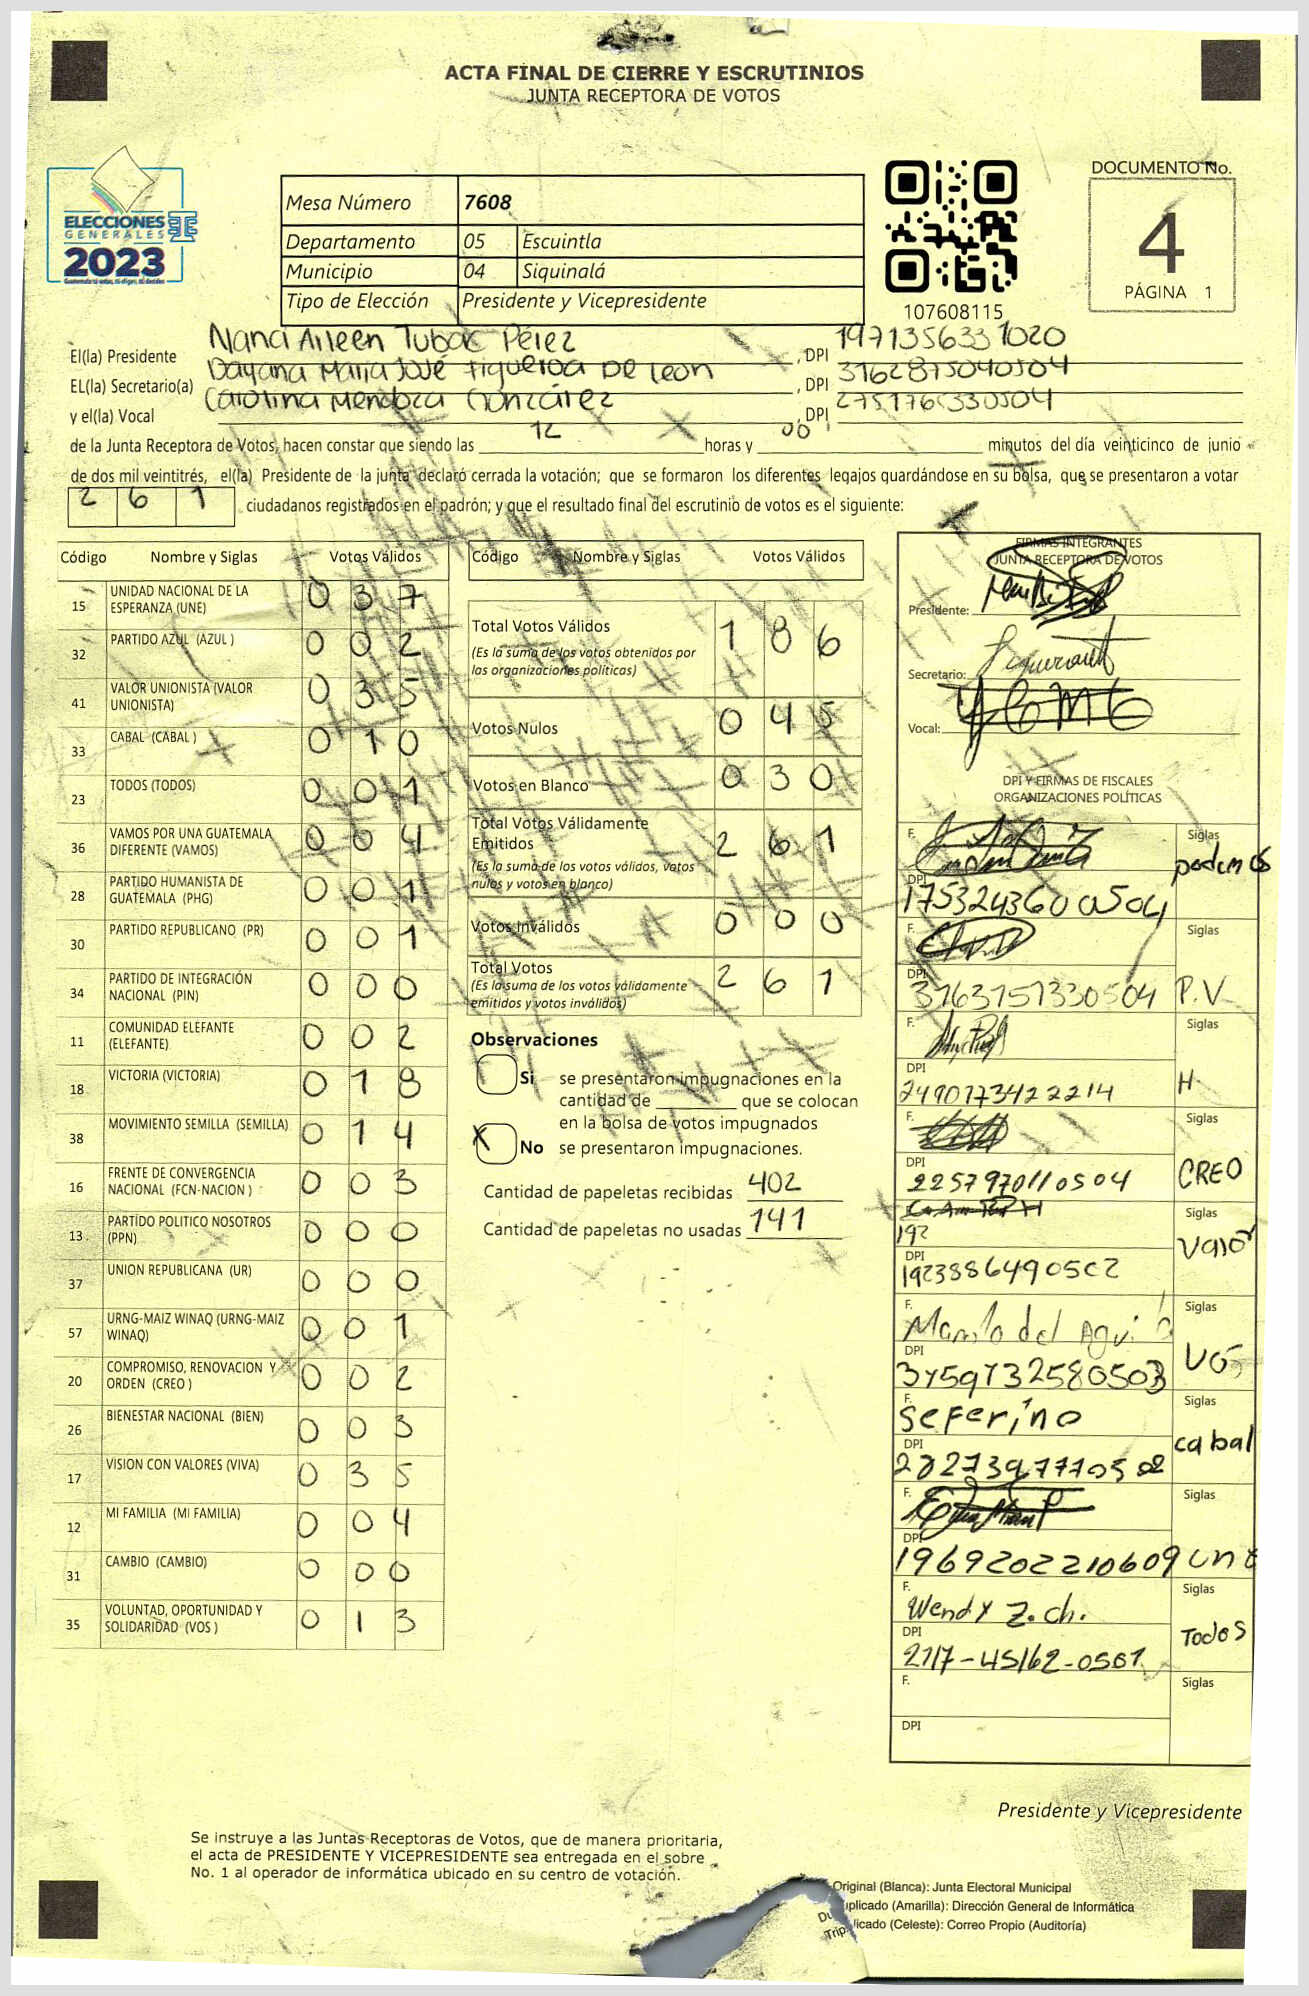 ACTA FINAL DE CIERRE Y ESCRUTINIOS
JUNTA RECEPTORA DE VOTOS
ELECCIONES
GENERALES
2023
Mesa Número 7608
Departamento 05 Escuintla
Municipio 04 Siquinalá
Tipo de Elección Presidente y Vicepresidente
107608115
DOCUMENTO No.
4
PÁGINA 1
El(la) Presidente Nanci Aileen Tubac Pérez, DPI 1971356331020
EL(la) Secretario(a) Dayana María José Figueroa De León, DPI 3162875040504
y el(la) Vocal Carolina Mendoza González, DPI 2751765330504
de la Junta Receptora de Votos, hacen constar que siendo las 12 horas y 00 minutos del día veinticinco de junio
de dos mil veintitrés, el(la) Presidente de la junta declaró cerrada la votación; que se formaron los diferentes legajos guardándose en su bolsa, que se presentaron a votar
2 6 1 ciudadanos registrados en el padrón; y que el resultado final del escrutinio de votos es el siguiente:
Código Nombre y Siglas Votos Válidos
15 UNIDAD NACIONAL DE LA ESPERANZA (UNE) 0 3 7
32 PARTIDO AZUL (AZUL ) 0 0 2
41 VALOR UNIONISTA (VALOR UNIONISTA) 0 3 5
33 CABAL (CABAL ) 0 1 0
23 TODOS (TODOS) 0 0 1
36 VAMOS POR UNA GUATEMALA DIFERENTE (VAMOS) 0 0 4
28 PARTIDO HUMANISTA DE GUATEMALA (PHG) 0 0 1
30 PARTIDO REPUBLICANO (PR) 0 0 1
34 PARTIDO DE INTEGRACIÓN NACIONAL (PIN) 0 0 0
11 COMUNIDAD ELEFANTE (ELEFANTE) 0 0 2
18 VICTORIA (VICTORIA) 0 1 8
38 MOVIMIENTO SEMILLA (SEMILLA) 0 1 4
16 FRENTE DE CONVERGENCIA NACIONAL (FCN-NACION ) 0 0 3
13 PARTIDO POLITICO NOSOTROS (PPN) 0 0 0
37 UNION REPUBLICANA (UR) 0 0 0
57 URNG-MAIZ WINAQ (URNG-MAIZ WINAQ) 0 0 1
20 COMPROMISO, RENOVACION Y ORDEN (CREO ) 0 0 2
26 BIENESTAR NACIONAL (BIEN) 0 0 3
17 VISION CON VALORES (VIVA) 0 3 5
12 MI FAMILIA (MI FAMILIA) 0 0 4
31 CAMBIO (CAMBIO) 0 0 0
35 VOLUNTAD, OPORTUNIDAD Y SOLIDARIDAD (VOS ) 0 1 3
Código Nombre y Siglas Votos Válidos
Total Votos Válidos 1 8 6
(Es la suma de los votos obtenidos por
las organizaciones políticas)
Votos Nulos 0 4 5
Votos en Blanco 0 3 0
Total Votos Válidamente
Emitidos 2 6 1
(Es la suma de los votos válidos, votos
nulos y votos en blanco)
Votos Inválidos 0 0 0
Total Votos 2 6 1
(Es la suma de los votos válidamente
emitidos y votos inválidos)
Observaciones
Si se presentaron impugnaciones en la
cantidad de ________ que se colocan
en la bolsa de votos impugnados
X No se presentaron impugnaciones.
Cantidad de papeletas recibidas 402
Cantidad de papeletas no usadas 141
FIRMAS INTEGRANTES
JUNTA RECEPTORA DE VOTOS
Presidente:
Secretario:
Vocal:
DPI Y FIRMAS DE FISCALES
ORGANIZACIONES POLÍTICAS
F. Siglas podemos
DPI 1753243600504
F. Siglas P.V
DPI 3163151330504
F. Siglas H
DPI 2490173422214
F. Siglas CREO
DPI 2257970110504
192 Siglas Valor
DPI 1923886490502
F. Siglas VOS
DPI 3459732580503
F. Seferino Siglas cabal
DPI
F. Siglas une
DPI 1969202210609
F. Wendy Z. ch. Siglas Todos
DPI 2117-45162-0501
F. Siglas
DPI
Presidente y Vicepresidente
Se instruye a las Juntas Receptoras de Votos, que de manera prioritaria,
el acta de PRESIDENTE Y VICEPRESIDENTE sea entregada en el sobre
No. 1 al operador de informática ubicado en su centro de votación.
Original (Blanca): Junta Electoral Municipal
Duplicado (Amarilla): Dirección General de Informática
Triplicado (Celeste): Correo Propio (Auditoría)